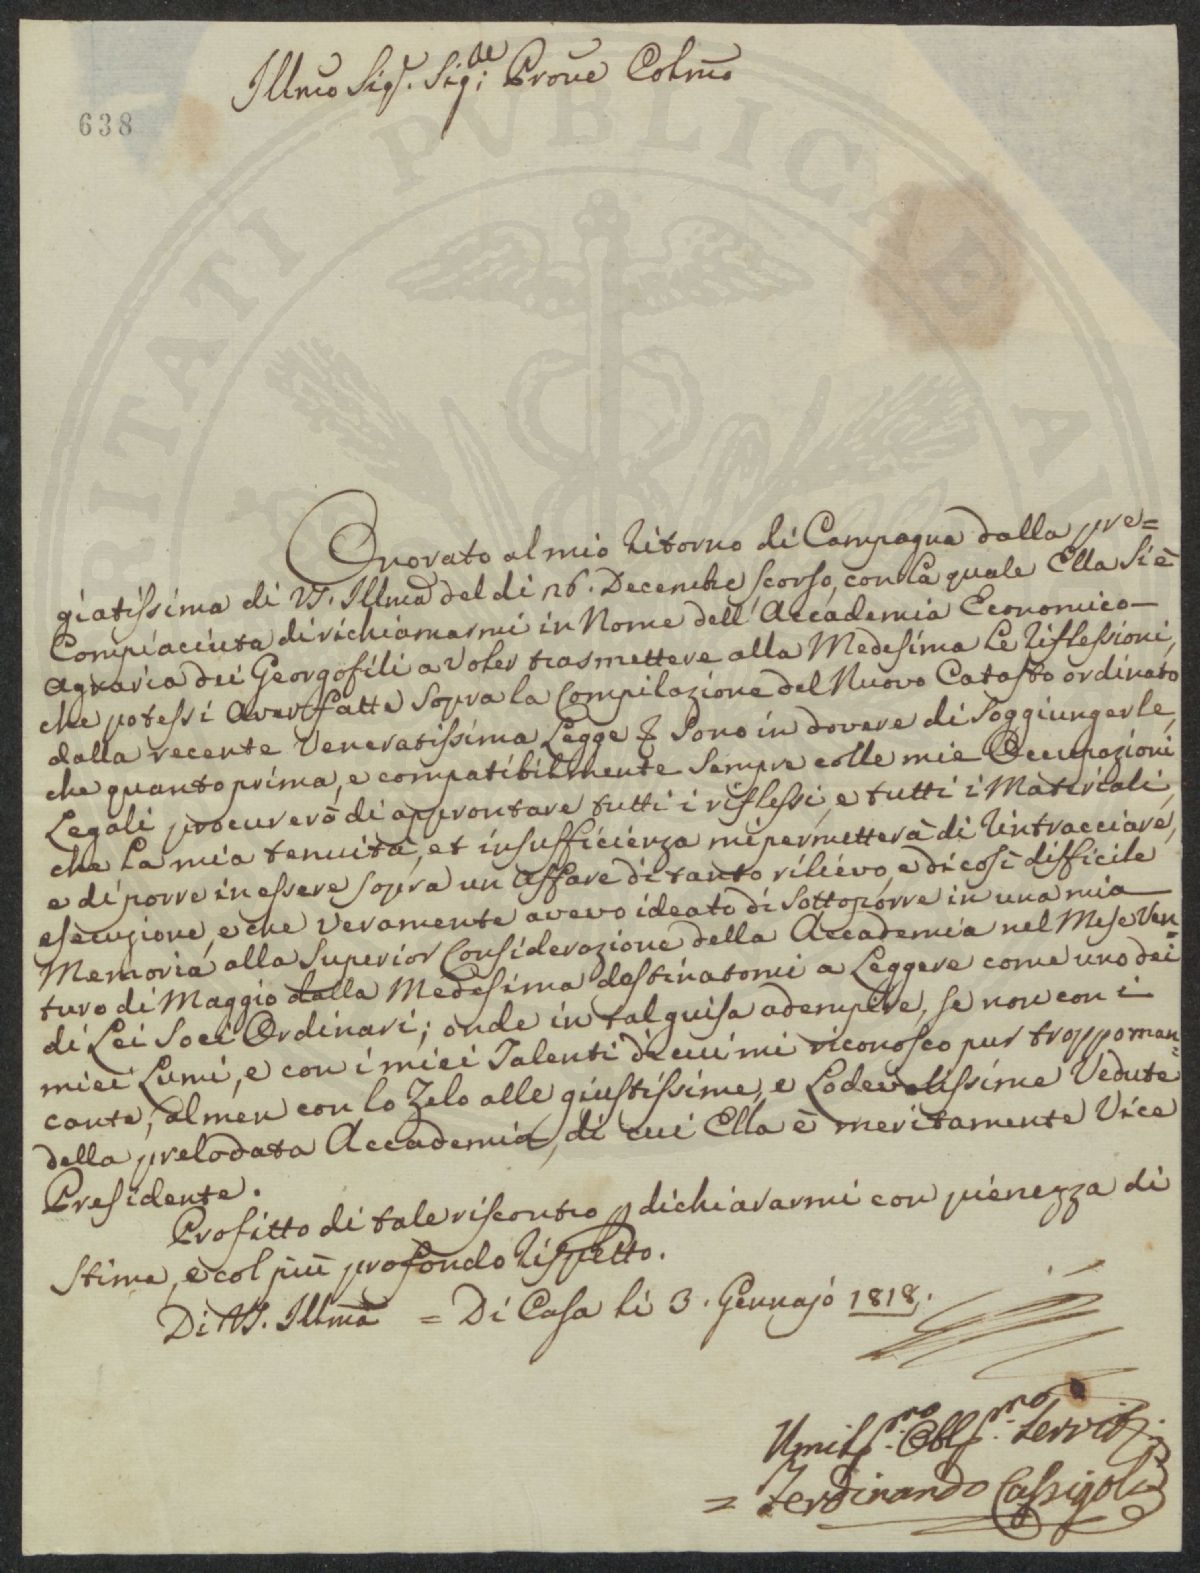 Illmo Sig.r Sig.re Prone Colmo
638
Onorato al mio ritorno di Campagna dalla pre=
giatissima di VS. Illma del di 26. Decembre scorso, con la quale Ella si è
Compiaciuta di richiamarmi in Nome dell'Accademia Economico-
agraria dei Georgofili a voler trasmettere alla Medesima le riflessioni,
che potessi aver fatte sopra la Compilazione del Nuovo Catasto ordinato
dalla recente Veneratissima Legge Sono in dovere di Soggiungerle,
che quanto prima, e compatibilmente sempre colle mie Occupazioni
Legali procurerò di approntare tutti i riflessi, e tutti i Materiali,
che la mia tenuità, et insufficienza mi permetterà di rintracciare,
e di porre in essere sopra un affare di tanto rilievo, e di così difficile
esecuzione, e che veramente avevo ideato di Sottoporre in una mia
Memoria alla Superior Considerazione della Accademia nel Mese Ven=
turo di Maggio dalla Medesima destinatomi a Leggere come uno dei
di Lei Soci Ordinari; onde in tal guisa adempire, se non con i
miei Lumi, e con i miei Talenti di cui mi riconosco pur troppo man=
cante, almen con lo Zelo alle giustissime, e Lodevolissime Vedute
della prelodata Accademia, di cui Ella è meritamente Vice
Presidente.
Profitto di tale riscontro p dichiararmi con pienezza di
stima, e col più profondo rispetto.
Di VS. Illma = Di Casa li 3. Gennajo 1818.
Umils.mo Obbls.mo Servit.
= Ferdinando Cassigoli
PVBLICAE